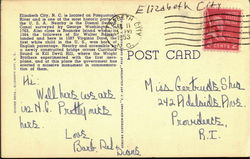 Elizabeth City
Elizabeth City, N. C. is located on Pasquotank
River and is one of the most historic parts of
the U. S. A. Nearby is the Dismal Swamp
Canal surveyed by George Washington in
1763. Also close is Roanoke Island where in
1584 the followers of Sir Walter Raleigh
landed and here in 1587 Virginia Dare, the
first white child in the U. S. was born of
English parentage. Nearby and accessible by
a newly constructed bridge across Currituck
Sound is Kill Devil Hill, where the Wright
Brothers experimented with the first aero-
plane, and at this place the government has
erected a massive monument in commemora-
tion of them.
POST CARD
Hi:
Well here we are
in N.C. Pretty nite
here
Love
Barb, Red &
Miss Gertrude Shea
242 Adelaide Ave.
Providence,
R.I.